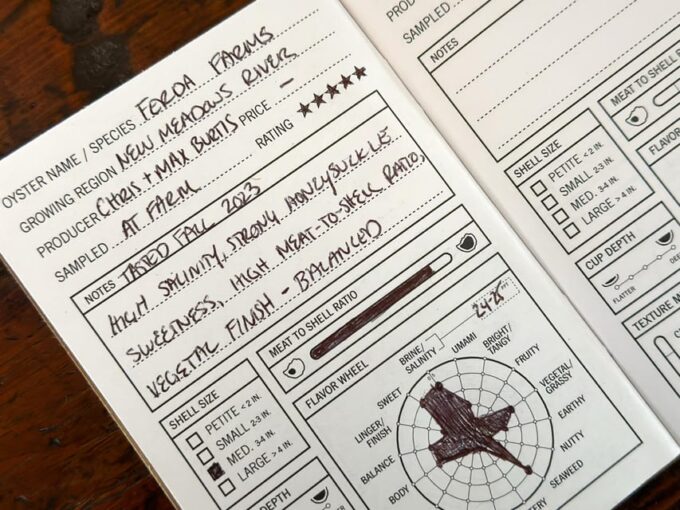 OYSTER NAME / SPECIES FERDA FARMS
GROWING REGION NEW MEADOWS RIVER
PRODUCER CHRIS + MAX BURTIS PRICE —
SAMPLED AT FARM RATING ★★★★★
NOTES TASTED FALL 2023
HIGH SALINITY, STRONG HONEYSUCKLE
SWEETNESS, HIGH MEAT-TO-SHELL RATIO,
VEGETAL FINISH - BALANCED
SHELL SIZE
PETITE < 2 IN.
SMALL 2-3 IN.
MED. 3-4 IN.
LARGE > 4 IN.
DEPTH
MEAT TO SHELL RATIO
FLAVOR WHEEL
BRINE/
SALINITY
UMAMI
BRIGHT/
TANGY
FRUITY
VEGETAL/
GRASSY
EARTHY
NUTTY
SEAWEED
BODY
BALANCE
LINGER/
FINISH
SWEET
PRODU
SAMPLED
NOTES
MEAT TO SHELL R
FLAVOR
SHELL SIZE
PETITE < 2 IN.
SMALL 2-3 IN.
MED. 3-4 IN.
LARGE > 4 IN.
CUP DEPTH
FLATTER
DEE
TEXTURE M